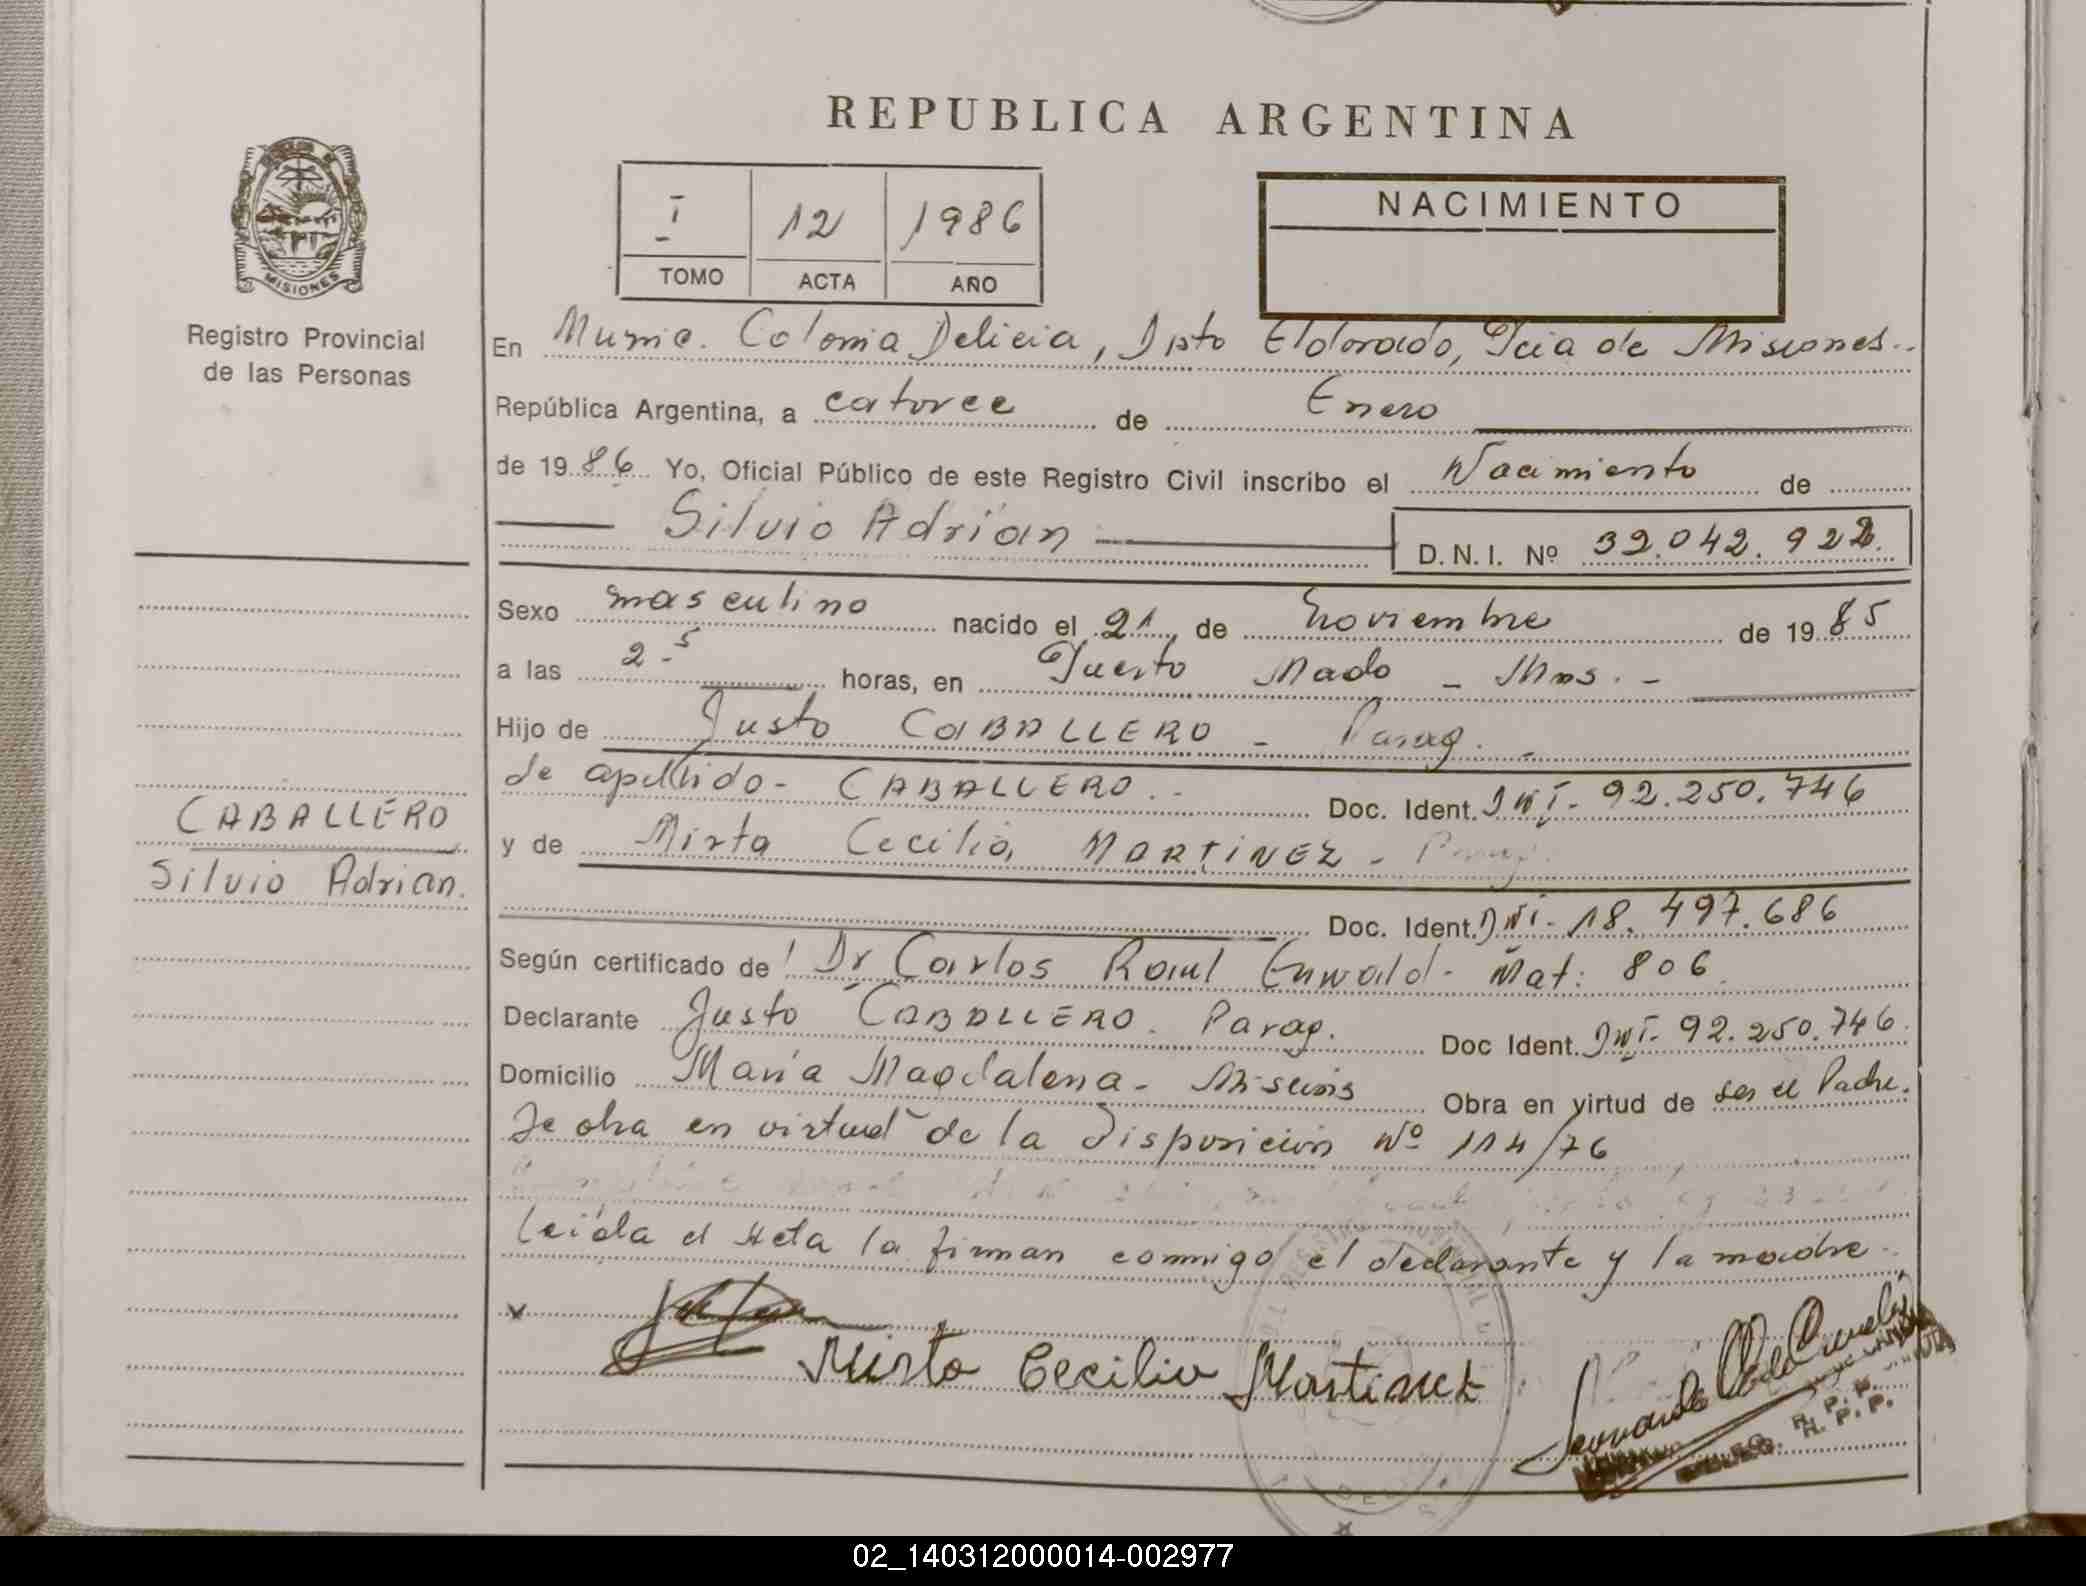 REPUBLICA ARGENTINA
MISIONES
Registro Provincial
de las Personas
I 12 1986
TOMO ACTA AÑO
NACIMIENTO
En Munic. Colonia Delicia, Dpto Eldorado, Pcia de Misiones.
República Argentina, a catorce de Enero
de 1986 Yo, Oficial Público de este Registro Civil inscribo el Nacimiento de
Silvio Adrian D.N.I. Nº 32.042.922
Sexo masculino nacido el 21 de noviembre de 1985
a las 2-5 horas, en Puerto Mado - Mns. -
Hijo de Justo CABALLERO - Parag. -
de apellido - CABALLERO. - Doc. Ident. DNI. 92.250.746
y de Mirta Cecilia MARTINEZ - Parag.
Doc. Ident. DNI- 18.497.686
CABALLERO
Silvio Adrian.
Según certificado de Dr Carlos Raul Enwald - Mat: 806
Declarante Justo CABALLERO. Parag. Doc Ident. DNI- 92.250.746.
Domicilio Maria Magdalena - Obra en virtud de ser el Padre.
Se obra en virtud de la Disposición Nº 114/76
leida el Acta la firman conmigo el declarante y la madre.
Mirta Cecilia Martinez
02_140312000014-002977